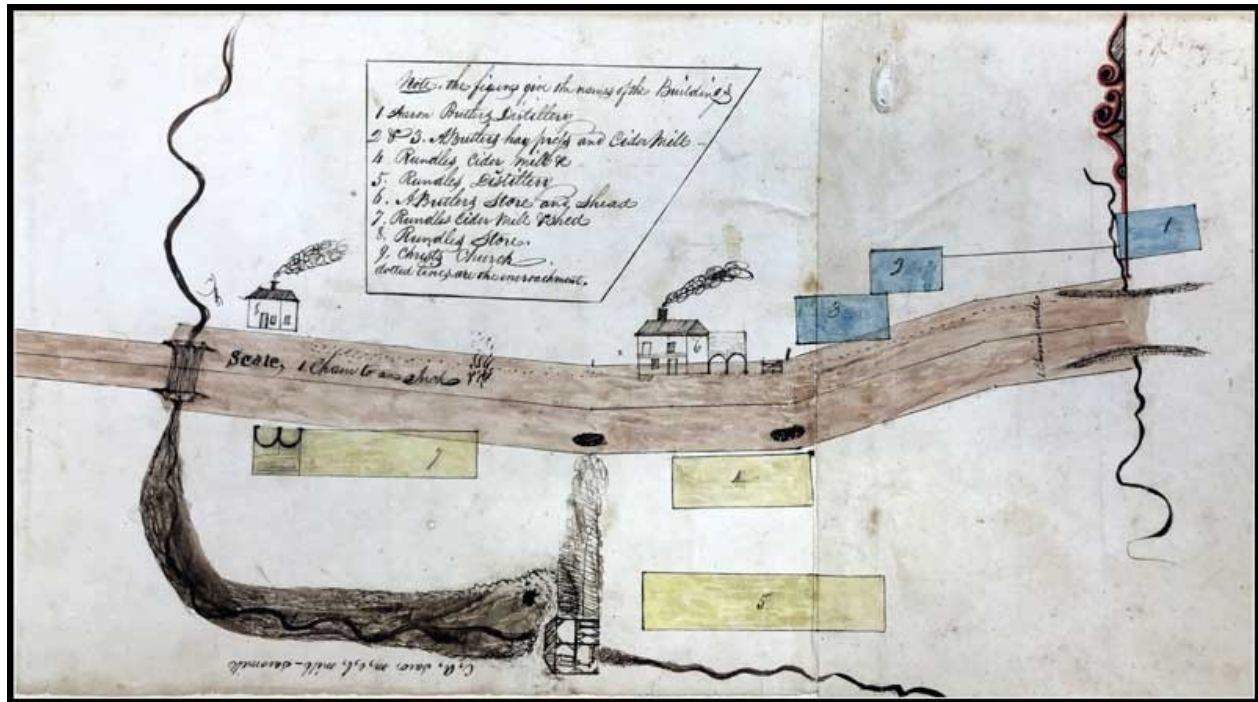 Note. the figures give the names of the Buildings
1 Aaron Butlers Distillery
2 & 3. A Butlers hay press and Cider Mill -
4. Rundles Cider Mill &
5. Rundles Distillery
6. A Butlers Store and Shead
7. Rundles Cider Mill & Shed
8. Rundles Store.
9. Christs Church
dotted lines are the encroachment.
1
2
3
6
8
Scale, 1 Chain to an Inch
7
4
5
mill - sawmill